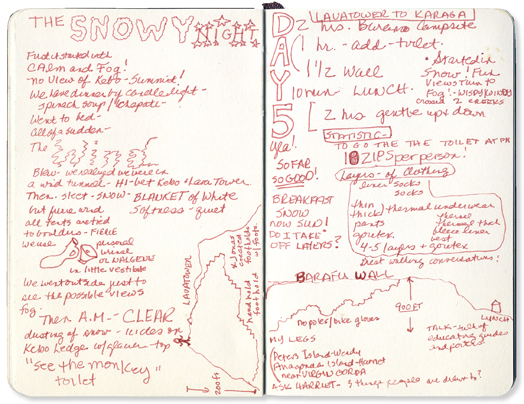 THE SNOWY NIGHT
First it started with
CALM and Fog!
no View of Kebo - Summit!
We have dinner by candle light -
spinach soup / chapati -
Went to bed -
All of a sudden -
The
Blew - we realized we were in
a wind tunnel - HI - bet Kebo + Lava Tower.
Then - sleet - snow - BLANKET of White
but fierce wind Softness - quiet
all tents are tied
to boulders - FIERCE
we use personal
urinal
OR NALGENE
in little vestibule
We went outside just to
see the possible views
fog.
Then A.M. - CLEAR
dusting of snow - icicles on
Kebo Ledge w/ glacier - top
"see the monkey"
toilet
LAVATOWER
hand held
foot held
200 ft
DAY 5
LAVATOWER TO KARAGA
2 hrs. Campsite
1 hr. - add - toilet.
1 1/2 Wall
10 min LUNCH.
2 hrs gentle up + down
Started in
Snow! Fun
VIEWS Turn to
Fog! - WISPS
crossed 2 creeks
yea!
SO FAR
SO GOOD!
STATISTIC -
TO GO THE THE TOILET AT PM
18 ZIPS per person!
Layers - of Clothing
liner socks
socks
thin
thick thermal underwear
pants
gortex.
thermal
thermal thick
fleece liner
vest
4-5 layers + gortex
BREAKFAST
SNOW
NOW SUN!
DO I TAKE
OFF LAYERS?
Great walking conversations!
BARAFU WALL
900 FT
LUNCH
poles/bike gloves
MY LEGS
TALK - full of
educating guides
and porters
Peters Island - Wendy
Anagonda Island - Harriet
near VIRGIN GORDA
ASK HARRIET - 5 things people are drawn to?